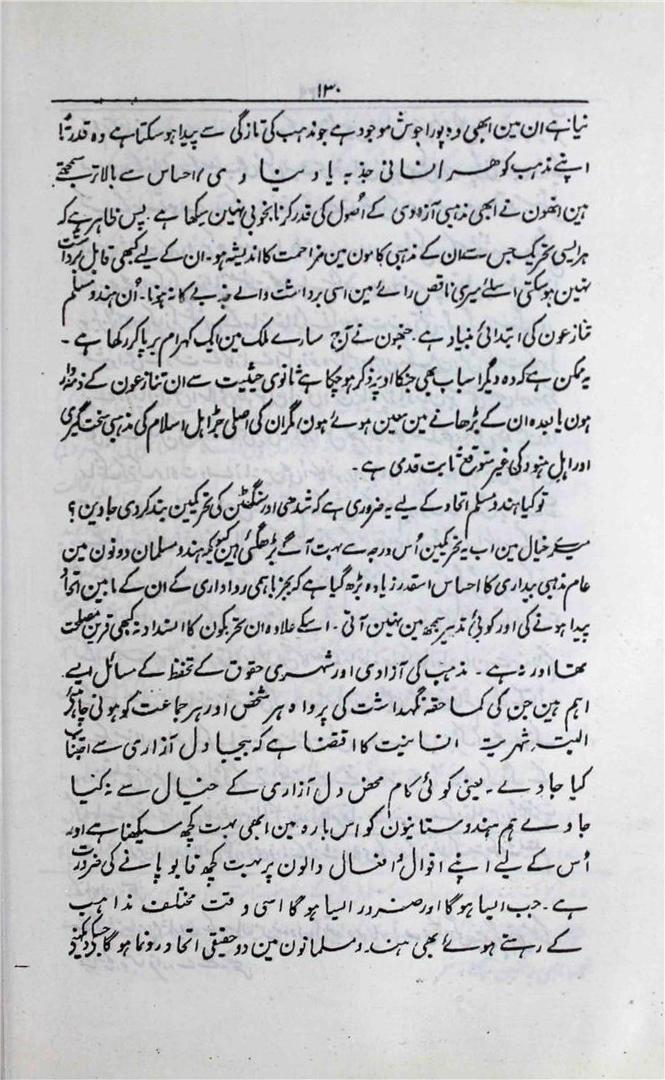 ۱۳۰
نیا ہے ان مین ابھی وہ پورا جوش موجود ہے جو مذہب کی تازگی سے پیدا ہو سکتا ہے وہ قدرتاً
اپنے مذہب کو ہر انسانی جذبہ یا دنیاوی احساس سے بالاتر سمجھتے
ہین انھون نے ابھی مذہبی آزادی کے اُصول کی قدر کرنا بخوبی نہین سیکھا ہے پس ظاہر ہے کہ
ہر ایسی تحریک جس سے ان کے مذہبی کامون مین مزاحمت کا اندیشہ ہو۔ ان کے لیے کبھی قابل برداشت
نہین ہو سکتی اسلئے میری ناقص رائے مین اسی برداشت والے جذبے کا نہ ہونا۔ اُن ہندو مسلم
تنازعون کی ابتدائی بنیاد ہے۔ جنھون نے آج سارے ملک مین ایک کہرام برپا کر رکھا ہے۔
یہ ممکن ہے کہ وہ دیگر اسباب بھی جنکا اوپر ذکر ہو چکا ہے ثانوی حیثیت سے ان تنازعون کے ذمہ دار
ہون یا بعدہ ان کے بڑھانے مین معین ہوئے ہون مگر ان کی اصلی جڑ اہل اسلام کی مذہبی سخت گیری
اور اہل ہنود کی غیر متوقع ثابت قدمی ہے۔
تو کیا ہندو مسلم اتحاد کے لیے یہ ضروری ہے کہ شدھی اور سنگٹھن کی تحریکین بند کر دی جاوین؟
میرے خیال مین اب یہ تحریکین اُس درجہ سے بہت آگے بڑھ گئی ہین کیونکہ ہندو مسلمان دونون مین
عام مذہبی بیداری کا احساس اسقدر زیادہ بڑھ گیا ہے کہ بجز باہمی رواداری کے ان کے مابین اتحاد
پیدا ہونے کی اور کوئی تدبیر سمجھ مین نہین آتی۔ اسکے علاوہ ان تحریکون کا انسداد نہ کبھی قرین مصلحت
تھا اور نہ ہے۔ مذہب کی آزادی اور شہری حقوق کے تحفظ کے مسائل ایسے
اہم ہین جن کی کما حقہ نگہداشت کی پرواہ ہر شخص اور ہر جماعت کو ہونی چاہئیے
البتہ شہریت انسانیت کا اقتضا ہے کہ بیجا دل آزاری سے اجتناب
کیا جاوے۔ یعنی کوئی کام محض دل آزاری کے خیال سے نہ کیا
جاوے ہم ہندوستانیون کو اس بارہ مین ابھی بہت کچھ سیکھنا ہے اور
اُس کے لیے اپنے اقوال و افعال والون پر بہت کچھ قابو پانے کی ضرورت
ہے۔ جب ایسا ہوگا اور ضرور ایسا ہوگا اسی وقت مختلف مذاہب
کے رہتے ہوئے بھی ہندو مسلمانون مین وہ حقیقی اتحاد رونما ہوگا